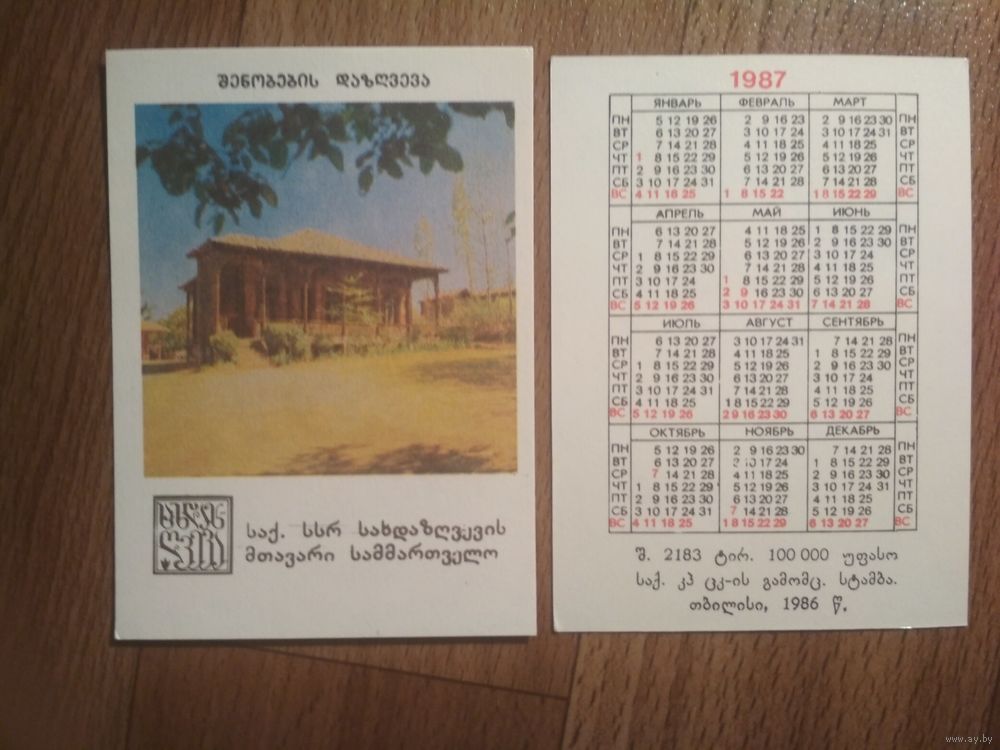 შენობების დაზღვევა
საქ. სსრ სახდაზღვევის
მთავარი სამმართველო
1987
ЯНВАРЬ ФЕВРАЛЬ МАРТ
ПН 5 12 19 26 2 9 16 23 2 9 16 23 30 ПН
ВТ 6 13 20 27 3 10 17 24 3 10 17 24 31 ВТ
СР 7 14 21 28 4 11 18 25 4 11 18 25 СР
ЧТ 1 8 15 22 29 5 12 19 26 5 12 19 26 ЧТ
ПТ 2 9 16 23 30 6 13 20 27 6 13 20 27 ПТ
СБ 3 10 17 24 31 7 14 21 28 7 14 21 28 СБ
ВС 4 11 18 25 1 8 15 22 1 8 15 22 29 ВС
АПРЕЛЬ МАЙ ИЮНЬ
ПН 6 13 20 27 4 11 18 25 1 8 15 22 29 ПН
ВТ 7 14 21 28 5 12 19 26 2 9 16 23 30 ВТ
СР 1 8 15 22 29 6 13 20 27 3 10 17 24 СР
ЧТ 2 9 16 23 30 7 14 21 28 4 11 18 25 ЧТ
ПТ 3 10 17 24 1 8 15 22 29 5 12 19 26 ПТ
СБ 4 11 18 25 2 9 16 23 30 6 13 20 27 СБ
ВС 5 12 19 26 3 10 17 24 31 7 14 21 28 ВС
ИЮЛЬ АВГУСТ СЕНТЯБРЬ
ПН 6 13 20 27 3 10 17 24 31 7 14 21 28 ПН
ВТ 7 14 21 28 4 11 18 25 1 8 15 22 29 ВТ
СР 1 8 15 22 29 5 12 19 26 2 9 16 23 30 СР
ЧТ 2 9 16 23 30 6 13 20 27 3 10 17 24 ЧТ
ПТ 3 10 17 24 31 7 14 21 28 4 11 18 25 ПТ
СБ 4 11 18 25 1 8 15 22 29 5 12 19 26 СБ
ВС 5 12 19 26 2 9 16 23 30 6 13 20 27 ВС
ОКТЯБРЬ НОЯБРЬ ДЕКАБРЬ
ПН 5 12 19 26 2 9 16 23 30 7 14 21 28 ПН
ВТ 6 13 20 27 3 10 17 24 1 8 15 22 29 ВТ
СР 7 14 21 28 4 11 18 25 2 9 16 23 30 СР
ЧТ 1 8 15 22 29 5 12 19 26 3 10 17 24 31 ЧТ
ПТ 2 9 16 23 30 6 13 20 27 4 11 18 25 ПТ
СБ 3 10 17 24 31 7 14 21 28 5 12 19 26 СБ
ВС 4 11 18 25 1 8 15 22 29 6 13 20 27 ВС
შ. 2183 ტირ. 100 000 უფასო
საქ. კპ ცკ-ის გამომც. სტამბა.
თბილისი, 1986 წ.
www.ay.by